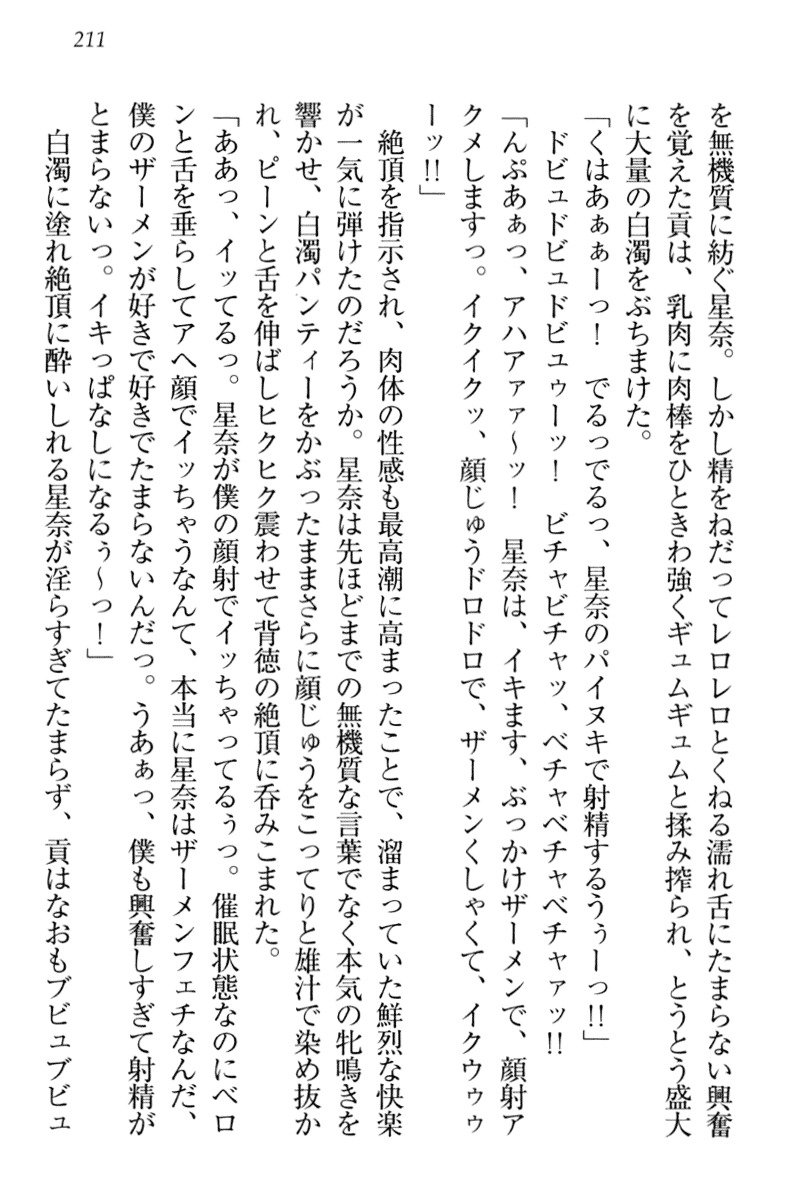 211
を無機質に紡ぐ星奈。しかし精をねだってレロレロとくねる濡れ舌にたまらない興奮
を覚えた貢は、乳肉に肉棒をひときわ強くギュムギュムと揉み搾られ、とうとう盛大
に大量の白濁をぶちまけた。
「くはあぁぁーっ！　でるっでるっ、星奈のパイヌキで射精するうぅーっ!!」
　ドビュドビュドビュゥーッ！　ビチャビチャッ、ベチャベチャベチャァッ!!
「んぷあぁっ、アハアァァ～ッ！　星奈は、イキます、ぶっかけザーメンで、顔射ア
クメしますっ。イクイクッ、顔じゅうドロドロで、ザーメンくしゃくて、イクウゥゥ
ーッ!!」
　絶頂を指示され、肉体の性感も最高潮に高まったことで、溜まっていた鮮烈な快楽
が一気に弾けたのだろうか。星奈は先ほどまでの無機質な言葉でなく本気の牝鳴きを
響かせ、白濁パンティーをかぶったままさらに顔じゅうをこってりと雄汁で染め抜か
れ、ピーンと舌を伸ばしヒクヒク震わせて背徳の絶頂に呑みこまれた。
「ああっ、イッてるっ。星奈が僕の顔射でイッちゃってるぅっ。催眠状態なのにベロ
ンと舌を垂らしてアヘ顔でイッちゃうなんて、本当に星奈はザーメンフェチなんだ、
僕のザーメンが好きで好きでたまらないんだっ。うあぁっ、僕も興奮しすぎて射精が
とまらないっ。イキっぱなしになるぅ～っ！」
　白濁に塗れ絶頂に酔いしれる星奈が淫らすぎてたまらず、貢はなおもブビュブビュ